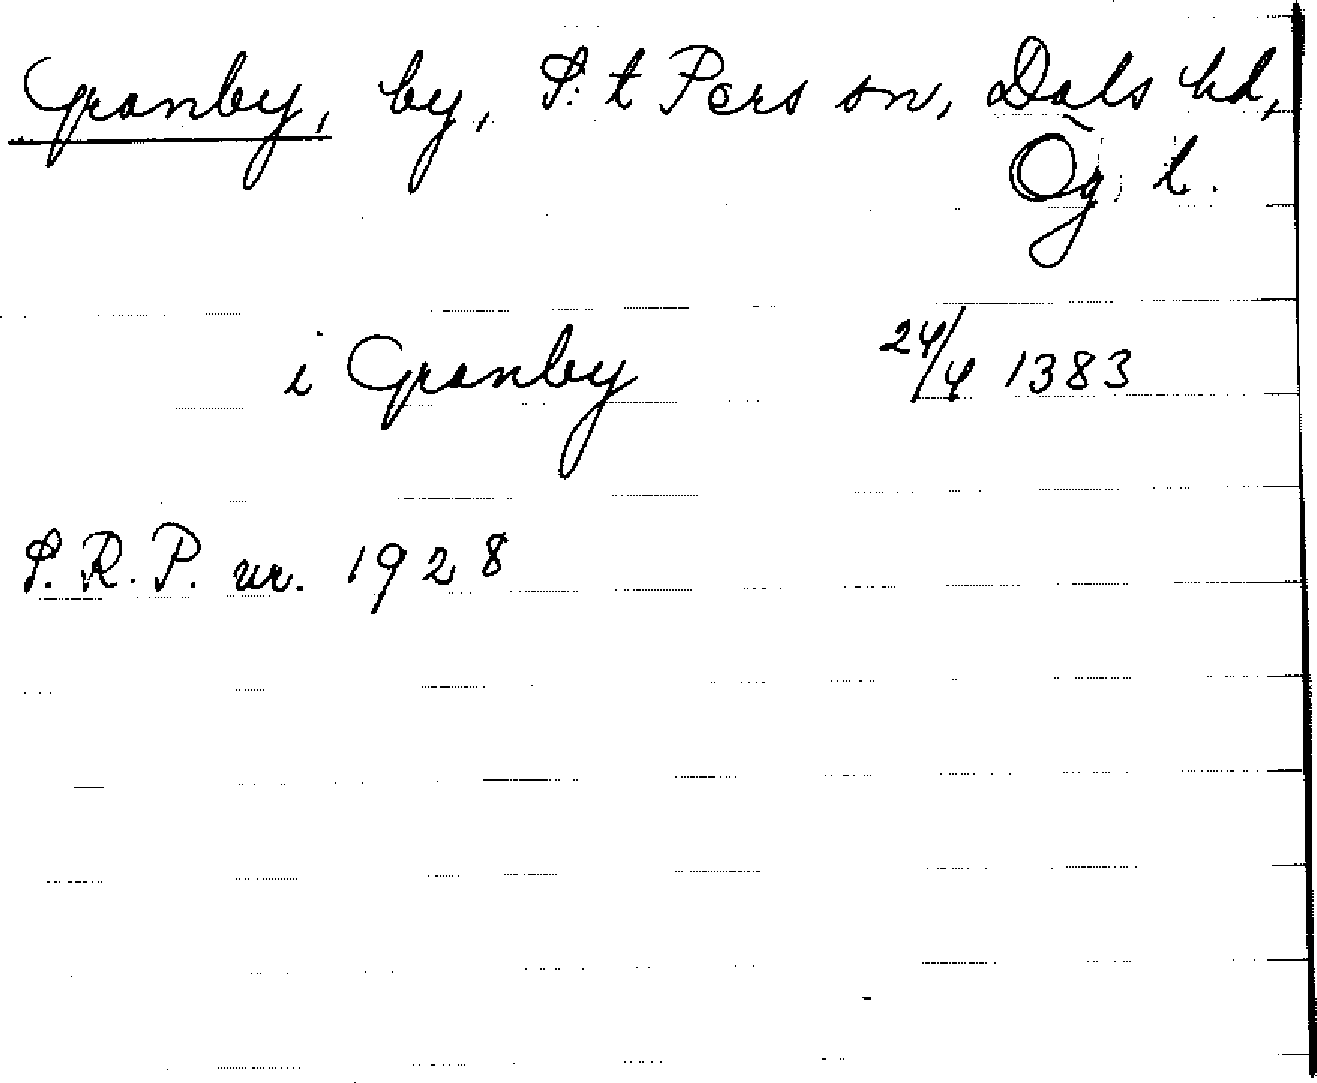 Granby, by, S:t Pers sn, Dals hd,
Ög. l.
i Granby 24/4 1383
S.R.P. nr. 1928